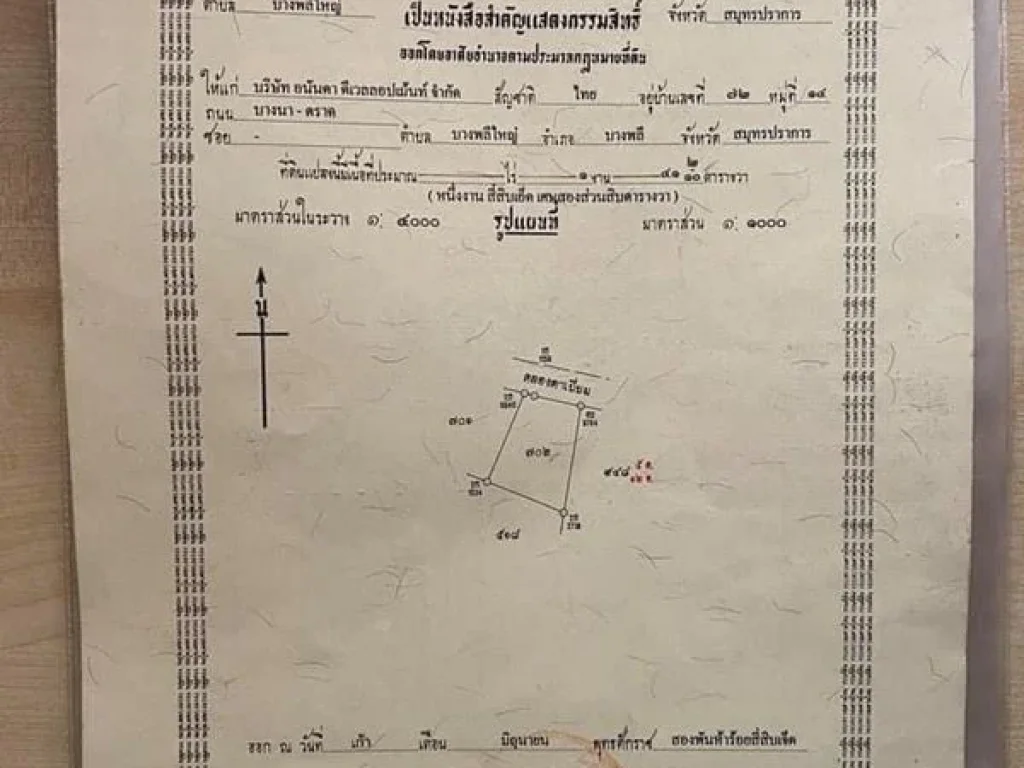 ตำบล บางพลีใหญ่ เป็นหนังสือสำคัญแสดงกรรมสิทธิ์ จังหวัด สมุทรปราการ
ออกโดยอาศัยอำนาจตามประมวลกฎหมายที่ดิน
ให้แก่ บริษัท อนันดา ดีเวลลอปเม้นท์ จำกัด สัญชาติ ไทย อยู่บ้านเลขที่ ๗๒ หมู่ที่ ๑๔
ถนน บางนา - ตราด
ซอย - ตำบล บางพลีใหญ่ อำเภอ บางพลี จังหวัด สมุทรปราการ
ที่ดินแปลงนี้มีเนื้อที่ประมาณ ไร่ ๑ งาน ๔๑ ๒/๑๐ ตารางวา
(หนึ่งงาน สี่สิบเอ็ด เศษสองส่วนสิบตารางวา)
มาตราส่วนในระวาง ๑: ๔๐๐๐ รูปแผนที่ มาตราส่วน ๑: ๑๐๐๐
น
คลองตาเปี่ยม
๗๐๑
๗๐๒
๙๔๘
๕๑๘
ออก ณ วันที่ เก้า เดือน มิถุนายน พุทธศักราช สองพันห้าร้อยสี่สิบเจ็ด